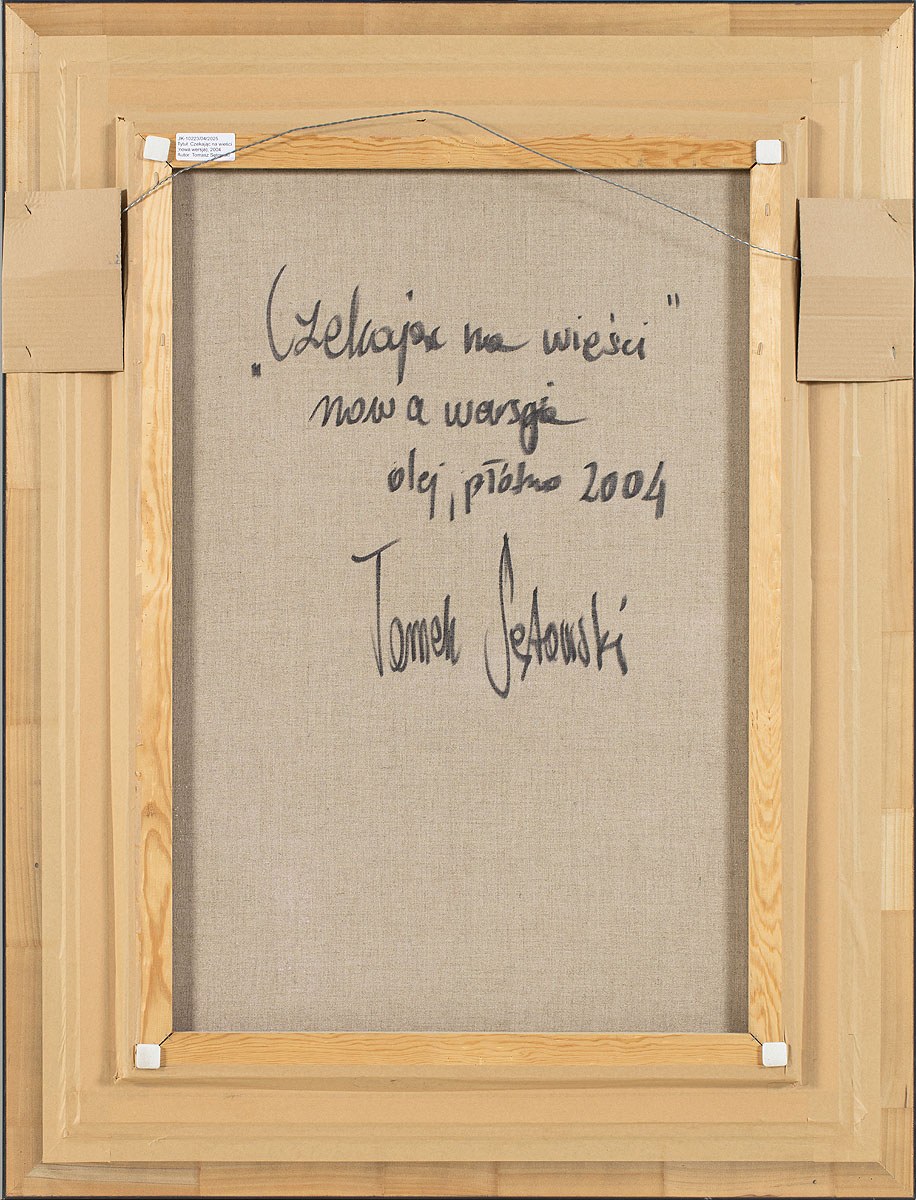 JK-10223/04/2025
Tytuł: Czekając na wieści
nowa wersja), 2004
Autor: Tomasz Sętowski
„Czekając na wieści"
nowa wersja
olej, płótno 2004
Tomek Sętowski